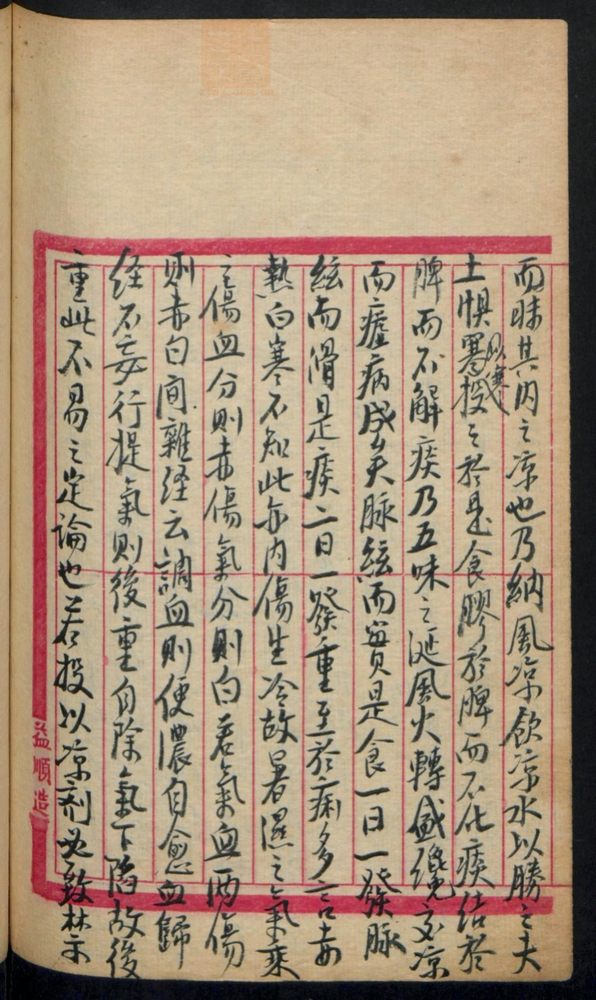 而昧其内之凉也乃納風凉飲凉水以勝之夫
土惧寒以寒投之於是食膠於脾而不化痰結於
脾而不解痰乃五味之涎風火轉盛纔交凉
而瘧病成矣脉絃而實是食一日一發脉
絃而滑是痰二日一發重至於痢多言赤
熱白寒不知此亦内傷生冷故暑濕之氣乘
之傷血分則赤傷氣分則白若氣血两傷
則赤白间雜经云調血則便濃自愈血歸
经不妄行提氣則後重自除氣下陷故後
重此不易之定論也若投以凉剂必致
益順造